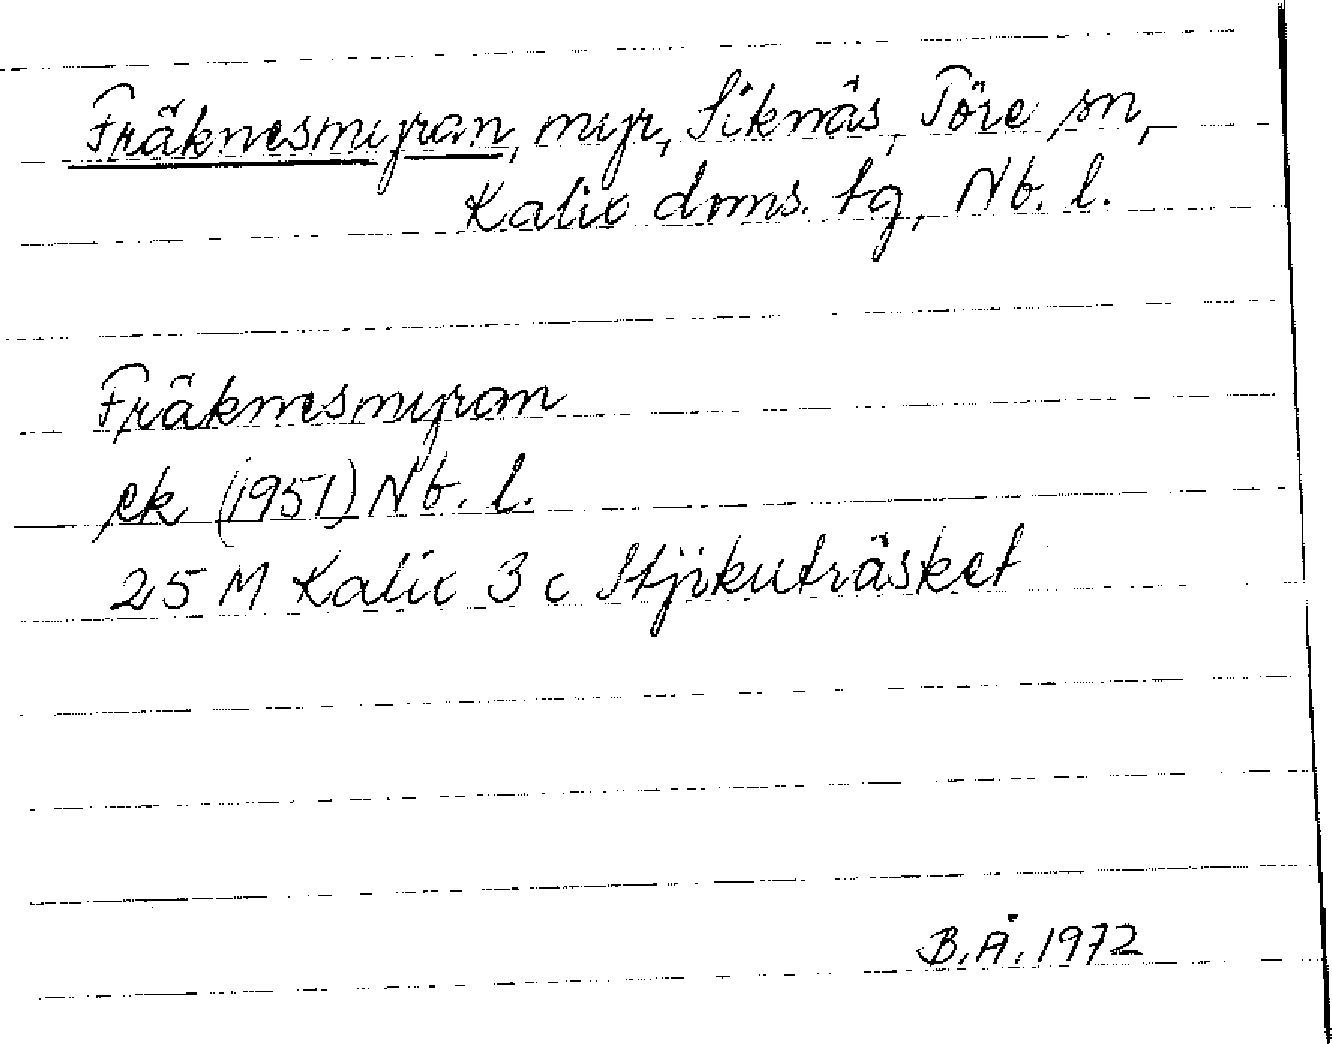 Fräknesmyran, myr, Siknäs, Töre sn,
Kalix doms. tg, Nb. l.
Fräknesmyran
ek (1951) Nb. l.
25 M Kalix 3 c Stjikuträsket
B.Å. 1972